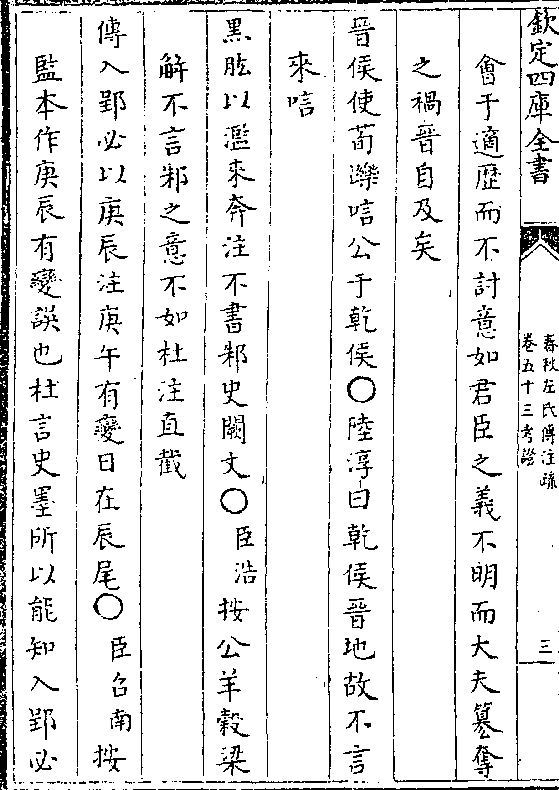 欽定四庫全書
春秋左氏傳注疏
卷五十三考證
三
會于適歴而不討意如君臣之義不明而大夫簒奪
之禍晉自及矣
晉侯使荀躒唁公于乾侯○陸淳曰乾侯晉地故不言
來唁
黒肱以濫來奔注不書邾史闕文○臣浩按公羊穀梁
解不言邾之意不如杜注直截
傳入郢必以庚辰注庚午有變日在辰尾○臣召南按
監本作庚辰有變誤也杜言史墨所以能知入郢必